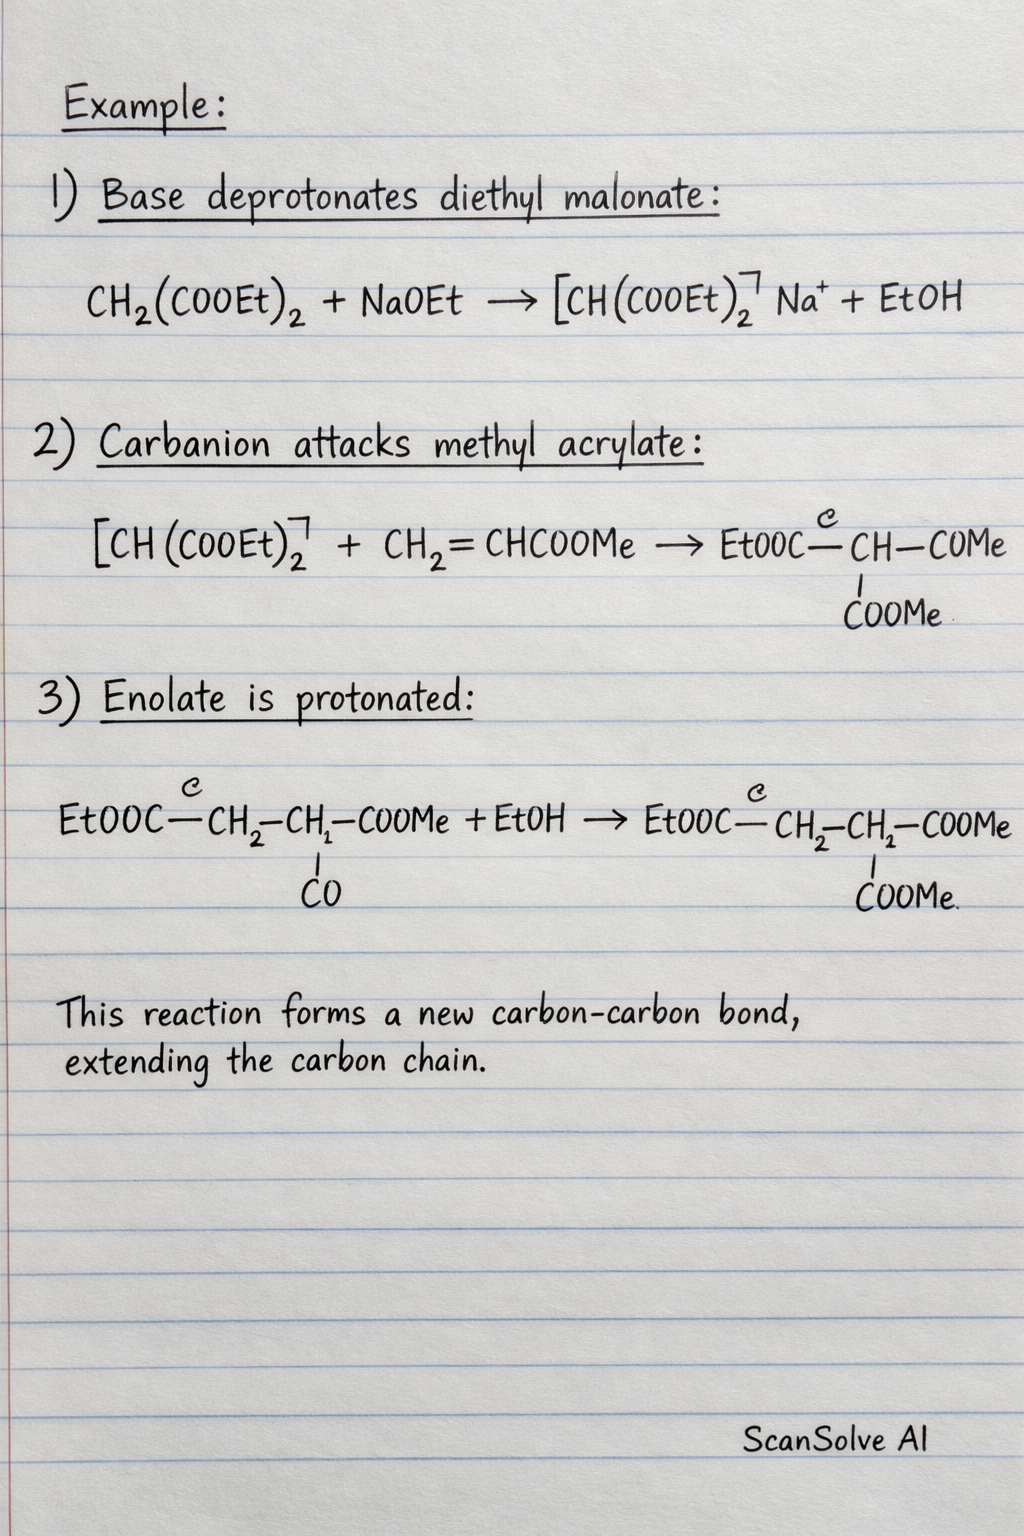 Example:
1) Base deprotonates diethyl malonate:
CH₂(COOEt)₂ + NaOEt → [CH(COOEt)₂⁻ Na⁺ + EtOH
2) Carbanion attacks methyl acrylate:
[CH(COOEt)₂⁻ + CH₂=CHCOOMe → EtOOC—CH—COMe
e
COOMe
3) Enolate is protonated:
e e
EtOOC—CH₂—CH₂—COOMe + EtOH → EtOOC—CH₂—CH₂—COOMe
CO COOMe.
This reaction forms a new carbon-carbon bond,
extending the carbon chain.
ScanSolve AI